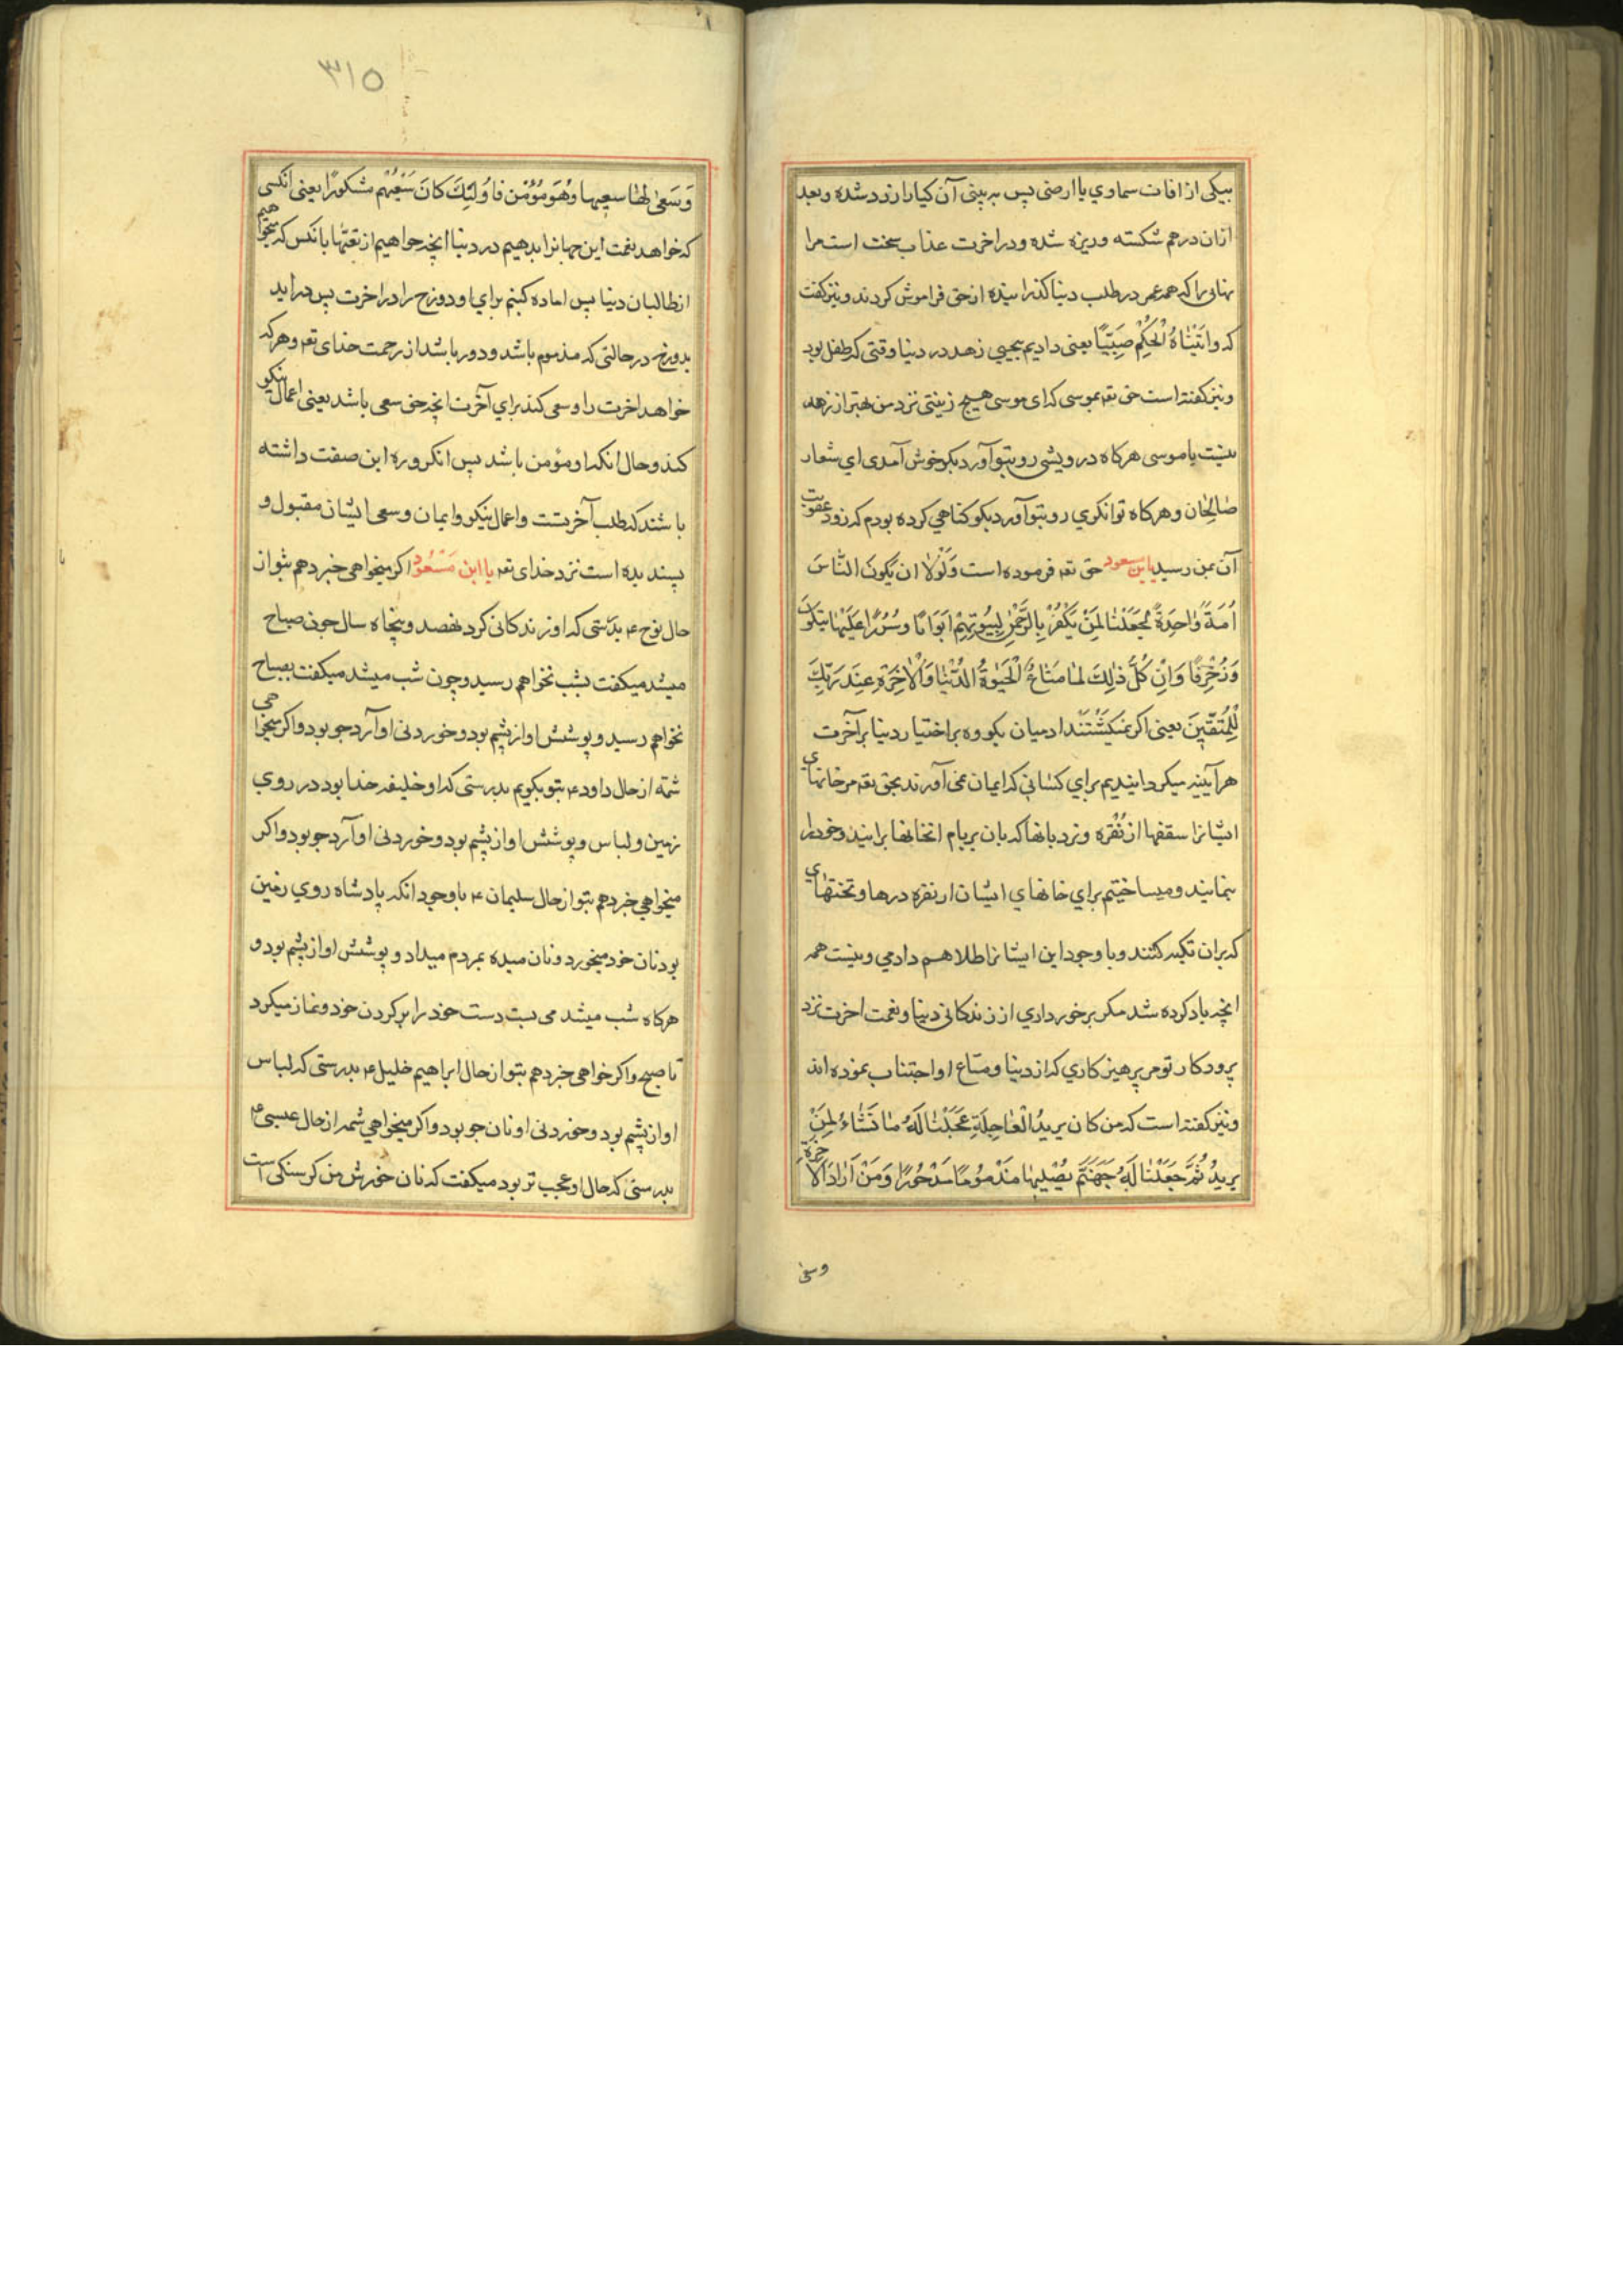 بیکی از افات سماوي یا ارضی پس به بینی آن کیاه را زرد شده و بعد
ازان درهم شکسته و ریزه شده و در اخرت عذاب سخت است مرا
نهایی را که همه عمر در طلب دنیا کذرانیده از حق فراموش کردند و نیز کفت
که واتَیْناهُ الْحُکْمَ صَبِیّاً یعنی دادیم بیحیی زهد در دنیا وقتی که طفل بود
و نیز کفته است حق تعه بموسی که ای موسی هیچ زینتی نزد من بهتر از زهد
نیست یا موسی هرکاه درویشی رو بتو آورد بکو خوش آمدی اي شعار
صٰالِحٰان و هرکاه توانکري رو بتو آورد بکو کناهي کرده بودم که زود عقوبت
آن بمن رسید یا بن مسعود حق تعه فرموده است وَلَوْلاٰ ان یَکُونَ النّٰاسَ
اُمَةً وٰاحِدَةً لَجَعَلْنٰا لِمَنْ یَکْفُرُ بِالرَّحْمٰنِ لِبُیُوتِهِمْ اَبَوابًا وَسُرُرًا عَلَیْهٰا یَتَّکِؤُنَ
وَزُخْرِفًا وَاِنِ کُلُّ ذٰلِكَ لَمٰا مَتٰاعُ الْحَیٰوةُ الدُّنْیٰا وَالْاٰخِرَةِ عِنْدَ رَبِّكَ
لِلْمُتَّقِینَ یعنی اکر نمیکَشْتَنْد ادمیان یکروه بر اختیار دنیا بر آخرت
هرآیینه میکردانیدیم براي کسانی که ایمان نمی آورند بحق تعه مر خانهاي
ایشانرا سقفها از نُقره و نردبانها که بان بر بام انخانها برایند و خود را
بنمایند و میساختیم براي خانهاي ایشان از نقره درها و تختهاي
که بران تکیه کنند و با وجود این ایشانرا طلا هم دادمي و نیست همه
انچه یاد کرده شد مکر برخورداري از زندکانی دنیا و نعمت اخرت نزد
پرودکار تو مر پرهیزکاري که از دنیا و متاع او اجتناب نموده اند
و نیز کفته است که من کان یریدُ الْعٰاجِلَةِ عَجَلْنٰا لَهُ مٰا نَشٰاءُ لِمَنْ
یریدُ ثُمَّ جَعَلْنٰا لَهُ جَهَنَّمَ یَصْلیهٰا مَذْمُومًا مَدْحُورًا وَمَنْ اَرٰادَ الاٰخرَةِ
وسعی
٣١٥
وَسَعیٰ لَهٰا سعیها وهُوَ مُؤْمن فاُولَئِكَ کانَ سَعْیُهُم مشکورًا یعنی آنکسی
که خواهد نعمت این جهانرا بدهیم در دنیا انچه خواهیم از نعمتها بانکس که میخواهیم
از طالبان دنیا پس اماده کنیم براي او دوزخ را در اخرت پس دراید
بدوزخ در حالتی که مذموم باشد و دور باشد از رحمت خدای تعه و هرکه
خواهد اخرت را و سعی کند براي آخرت انچه حق سعی باشد یعنی اعمال نیکو
کند و حال انکه او مؤمن باشد پس انکروه این صفت داشته
باشند که طلب آخرتست و اعمال نیکو و ایمان و سعی ایشان مقبول و
پسندیده است نزد خدای تعه یا ابن مَسْعُود اکر میخواهی خبر دهم بتو از
حال نوح ۴ بدرستی که او زندکانی کرد نهصد و پنجاه سال چون صباح
میشد میکفت بشب نخواهم رسید و چون شب میشد میکفت بصباح
نخواهم رسید و پوشش او از پشم بود و خوردنی او آرد جو بود و اکر میخواهی
شمّه از حال داود ۴ بتو بکویم بدرستی که او خلیفه خدا بود در روي
زمین و لباس و پوشش او از پشم بود و خوردنی او آرد جو بود و اکر
میخواهي خبر دهم بتو از حال سلیمان ۴ با وجود انکه پادشاه روي زمین
بود نان خود میخورد و نان میده بمردم میداد و پوشش او از پشم بود و
هرکاه شب میشد می بست دست خود را بر کردن خود و نماز میکرد
تا صبح و اکر خواهی خبر دهم بتو از حال ابراهیم خلیل ۴ بدرستی که لباس
او از پشم بود و خوردنی او نان جو بود و اکر میخواهي شمه از حال عیسی ۴
بدرستی که حال او عجب تر بود میکفت که نان خورش من کرسنکی است